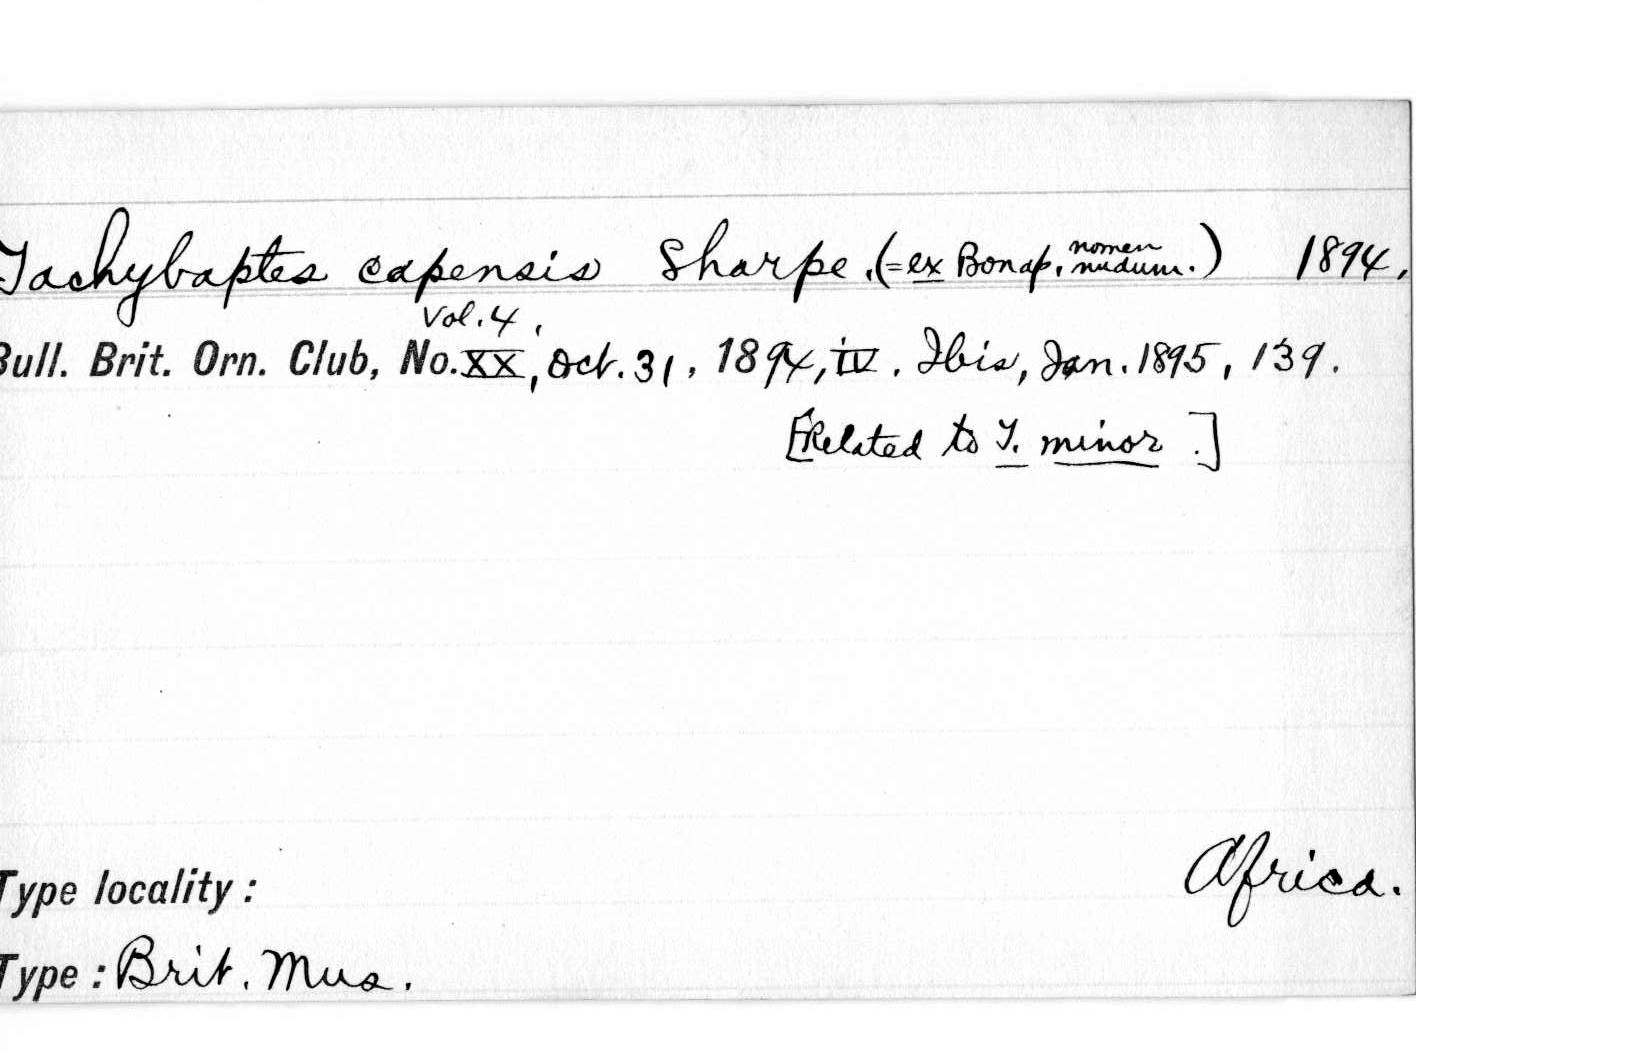 Tachybaptes capensis Sharpe. (=ex Bonap. nomen nudum.) 1894.
Vol. 4,
Bull. Brit. Orn. Club, No. XX, Oct. 31, 1894, iv. Ibis, Jan. 1895, 139.
[Related to T. minor.]
Type locality: Africa.
Type: Brit. Mus.